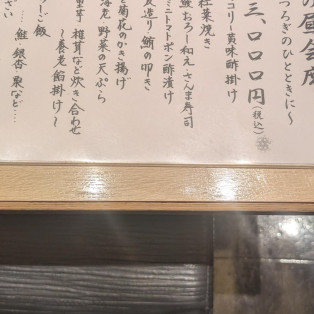 の昼会席
つろぎのひとときに～
三、〇〇〇円(税込)
コリー黄味酢掛け
紅葉焼き
鮭おろし和え さんま寿司
ミニトマトポン酢漬け
造り 鮪の叩き
菊花のかき揚げ
海老 野菜の天ぷら
椎茸など炊き合わせ
～養老餡掛け～
ご飯
鮭 銀杏 栗など…
さい